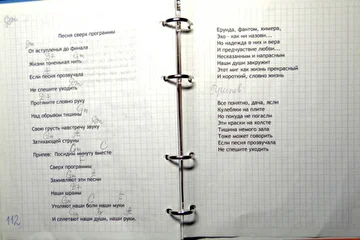 Песня сверх программы
От вступленья до финала
Жизни тоненькая нить
Если песня прозвучала
Не спешите уходить
Протяните словно руку
Над обрывом тишины
Свою грусть навстречу звуку
Затихающей струны
Припев: Посидим минуту вместе
Сверх программы
Заживляют эти песни
Наши шрамы
Утоляют наши боли наши муки
И сплетают наши души, наши руки.
112
Ерунда, фантом, химера,
Эхо - как ни назови...
Но надежда в них и вера
И предчувствие любви...
Несказанным и напрасным
Наши души закружит
Этот миг как жизнь прекрасный
И короткий, словно жизнь
Припев:
Все понятно, дача, ясли
Кулебяки на плите
Но покуда не погасли
Эти краски на холсте
Тишина немого зала
Тоже может говорить
Если песня прозвучала
Не спешите уходить